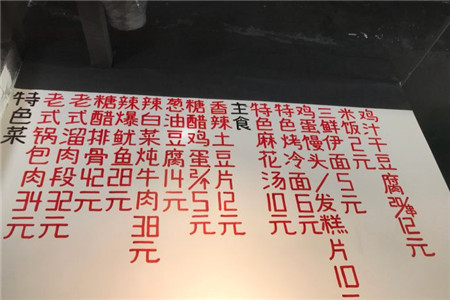 特色菜
老式锅包肉34元
老式溜肉段32元
糖醋排骨42元
辣爆鱿鱼28元
辣白菜炖牛肉38元
葱油豆腐14元
糖醋鸡蛋2个5元
香辣土豆片12元
主食
特色麻花汤10元
特色烤冷面6元
鸡蛋馒头/发糕片10元
三鲜伊面5元
米饭2元
鸡汁干豆腐20串12元